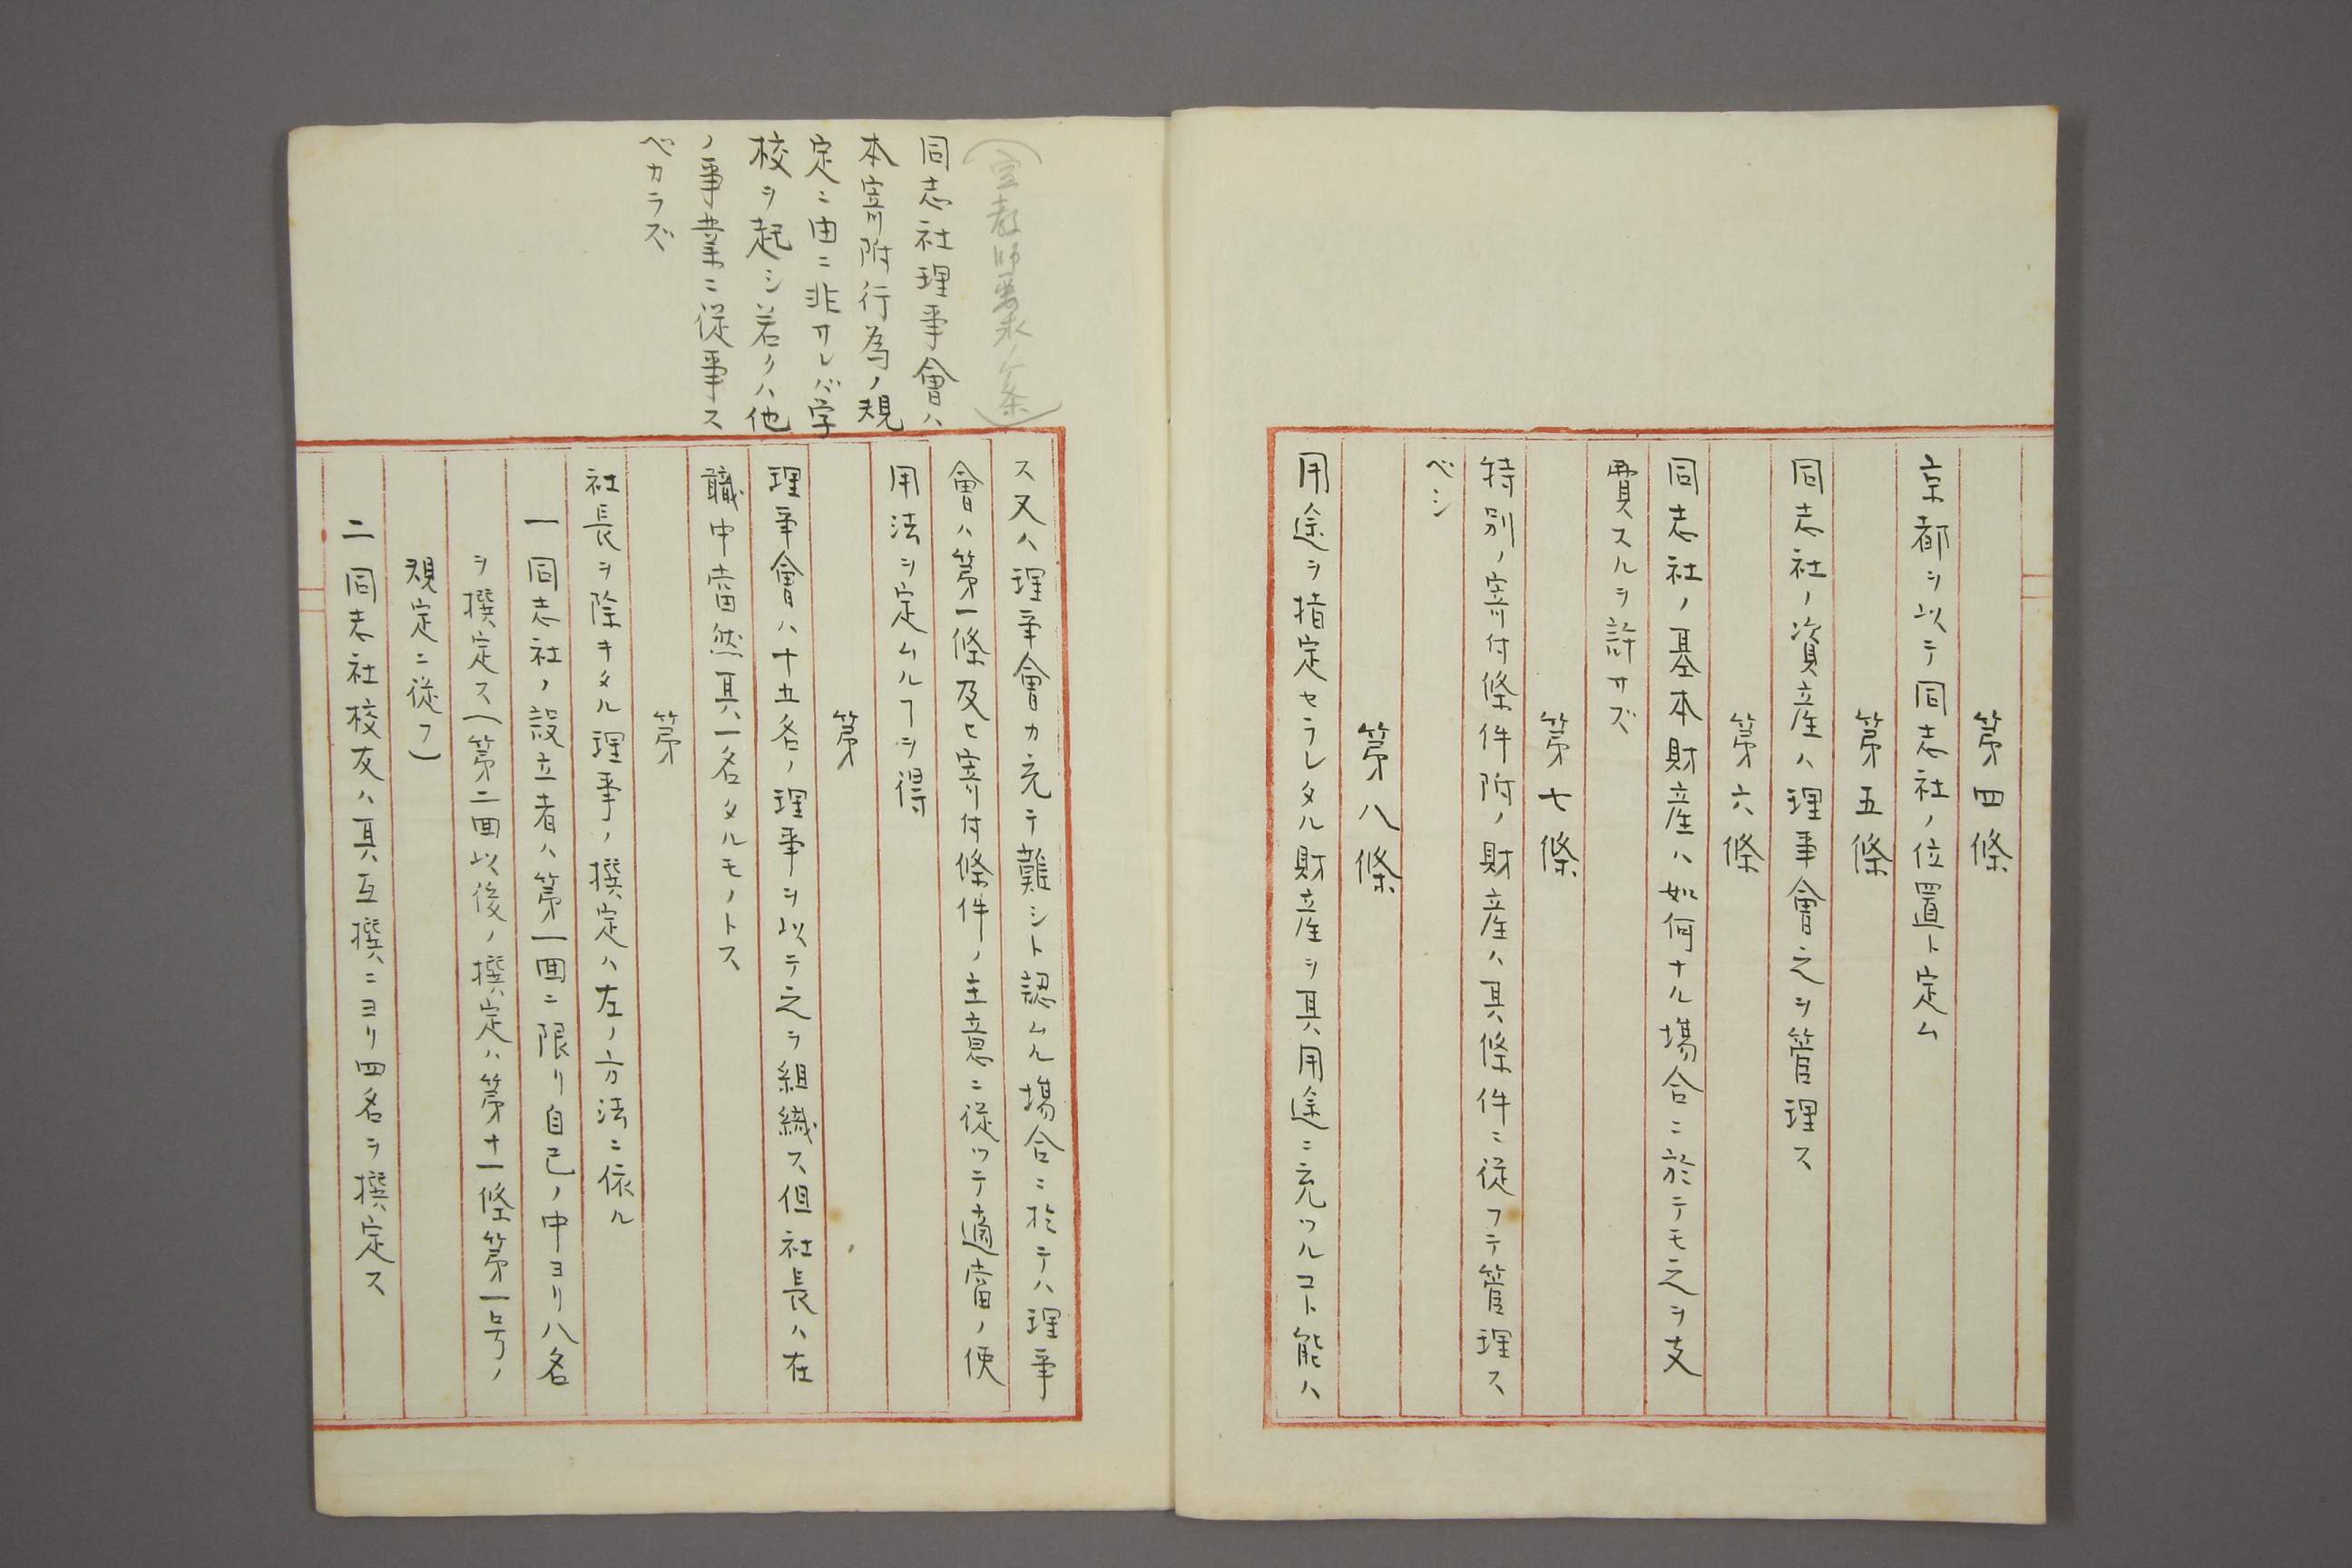 第四條
京都ヲ以テ同志社ノ位置ト定ム
第五條
同志社ノ資産ハ理事會之ヲ管理ス
第六條
同志社ノ基本財産ハ如何ナル塲合ニ於テモ之ヲ支
費スルヲ許サズ
第七條
特別ノ寄付條件附ノ財産ハ其條件ニ従フテ管理ス
ベシ
第八條
用途ヲ指定セラレタル財産ヲ其用途ニ充ツルコト能ハ
(宣教師要求ノ条)
同志社理事會ハ
本寄附行為ノ規
定ニ由ニ非サレバ学
校ヲ起シ若クハ他
ノ事業ニ従事ス
ベカラズ
ス又ハ理事會カ充テ難シト認ムル塲合ニ於テハ理事
會ハ第一條及ヒ寄付條件ノ主意ニ従ツテ適當ノ使
用法ヲ定ムルヿヲ得
第
理事會ハ十五名ノ理事ヲ以テ之ヲ組織ス但社長ハ在
職中當然其一名タルモノトス
第
社長ヲ除キタル理事ノ撰定ハ左ノ方法ニ依ル
一 同志社ノ設立者ハ第一回ニ限リ自己ノ中ヨリ八名
ヲ撰定ス(第二回以後ノ撰定ハ第十一條第一号ノ
規定ニ従フ)
二 同志社校友ハ其互撰ニヨリ四名ヲ撰定ス